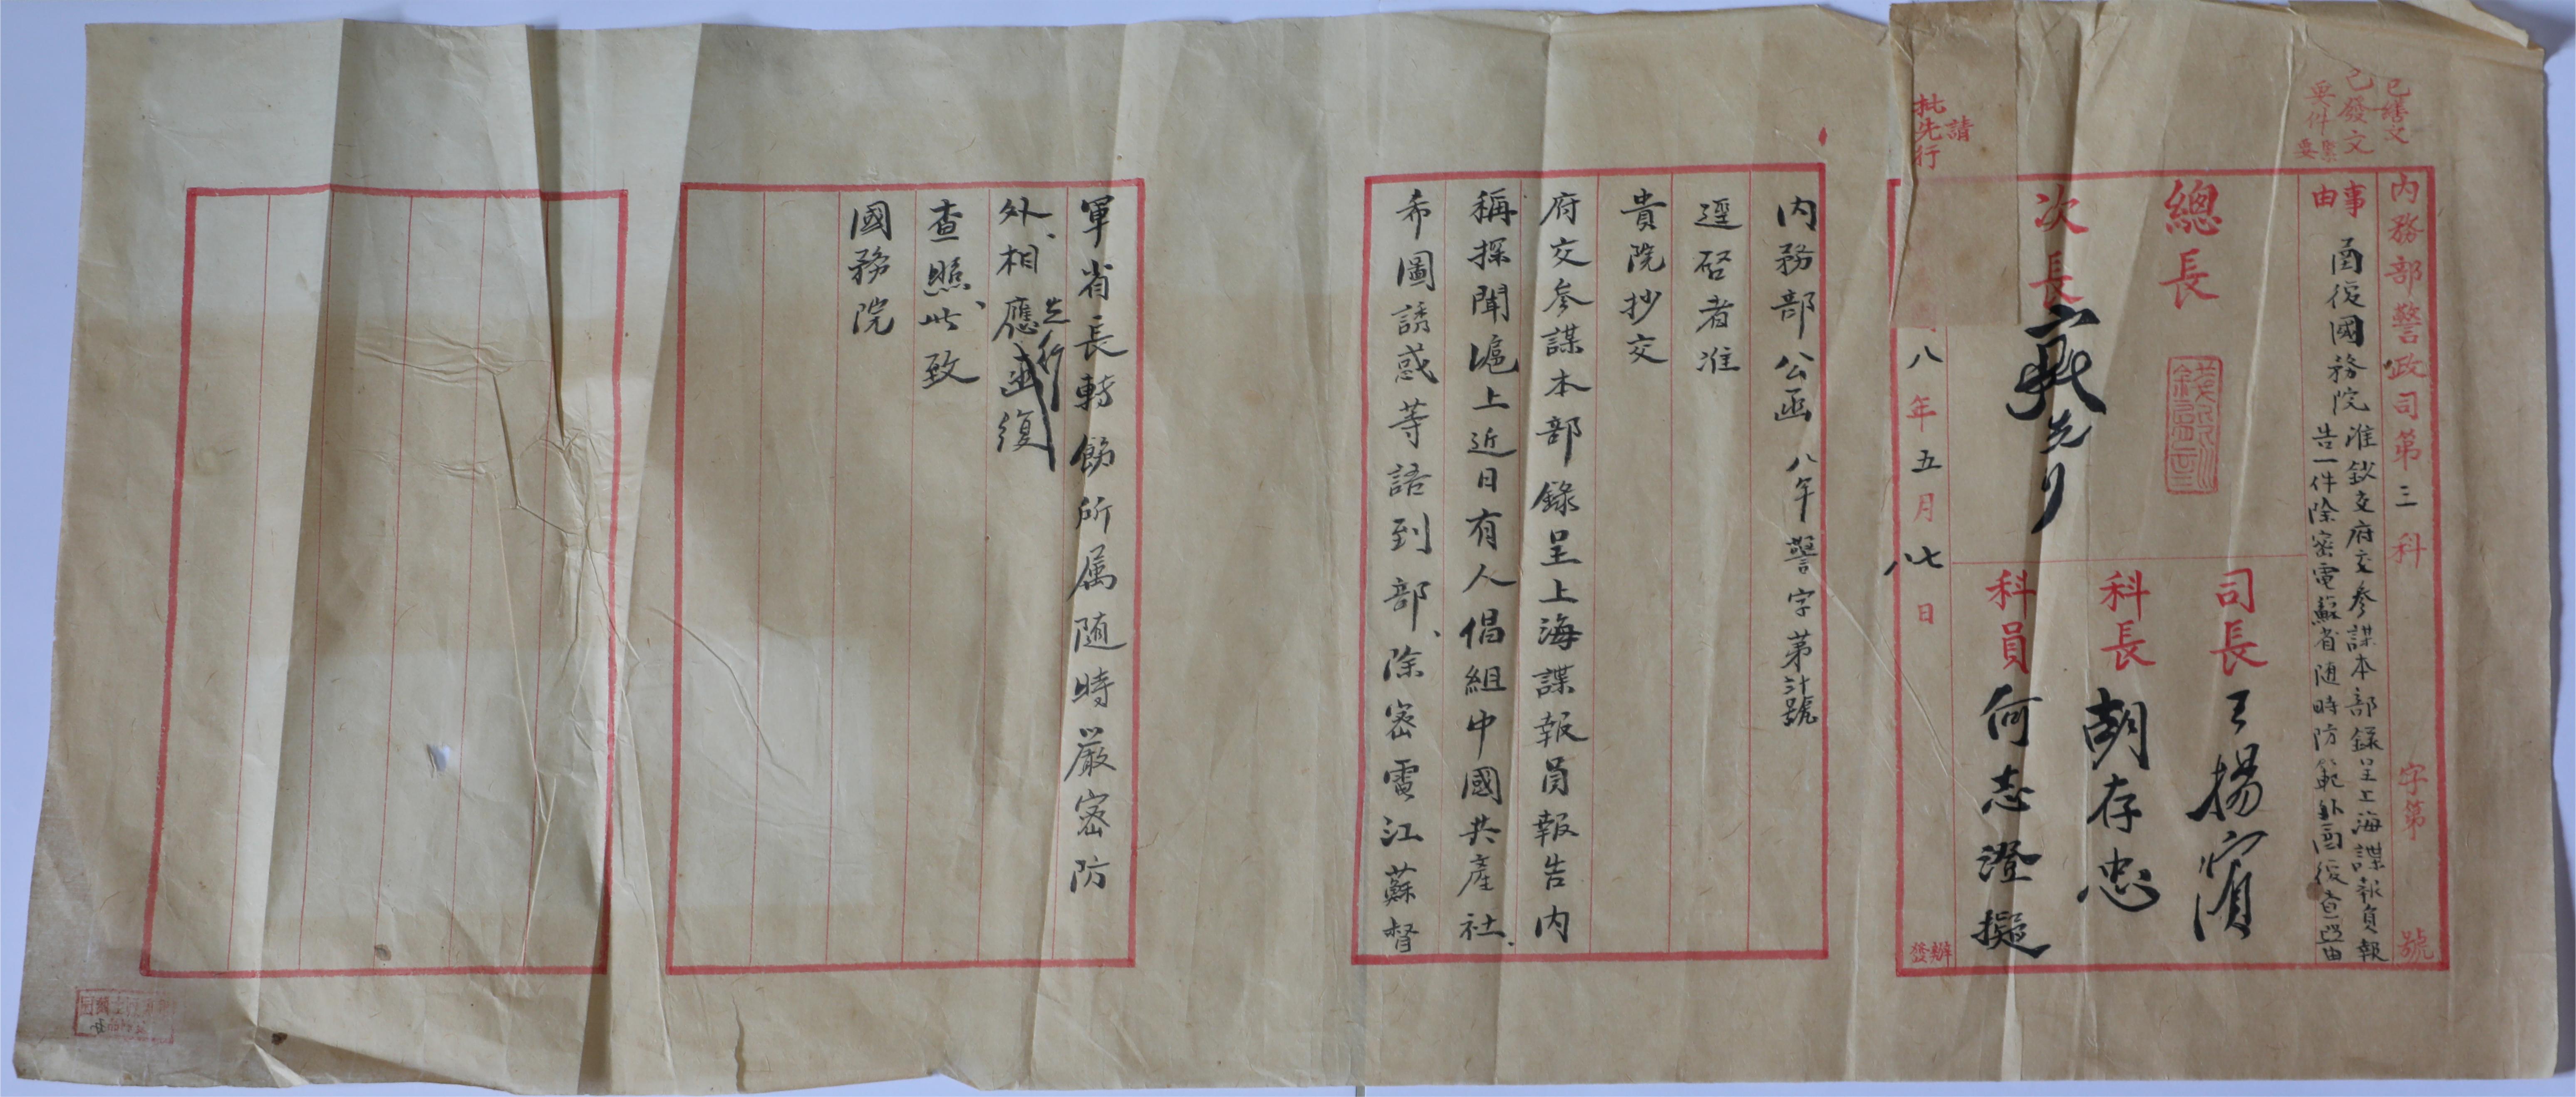 已繕文
已發文
要件
緊要
內務部警政司第三科 字第 號
事由
函復國務院准鈔交府交參謀本部錄呈上海諜報員報
告一件除密電蘇省随時防範外函復查照由
總長
次長
司長 王揚濱
科長 胡存忠
科員 何志澄擬
八年五月七日
八
辦發
請
批先行
內務部公函 八年警字第 號
逕啓者准
貴院抄交
府交參謀本部錄呈上海諜報員報告内
稱探聞滬上近日有人倡組中國共產社、
希圖誘惑等語到部、除密電江蘇督
軍省長轉飭所属随時嚴密防
外、相應函復
先行
查照、此致
國務院